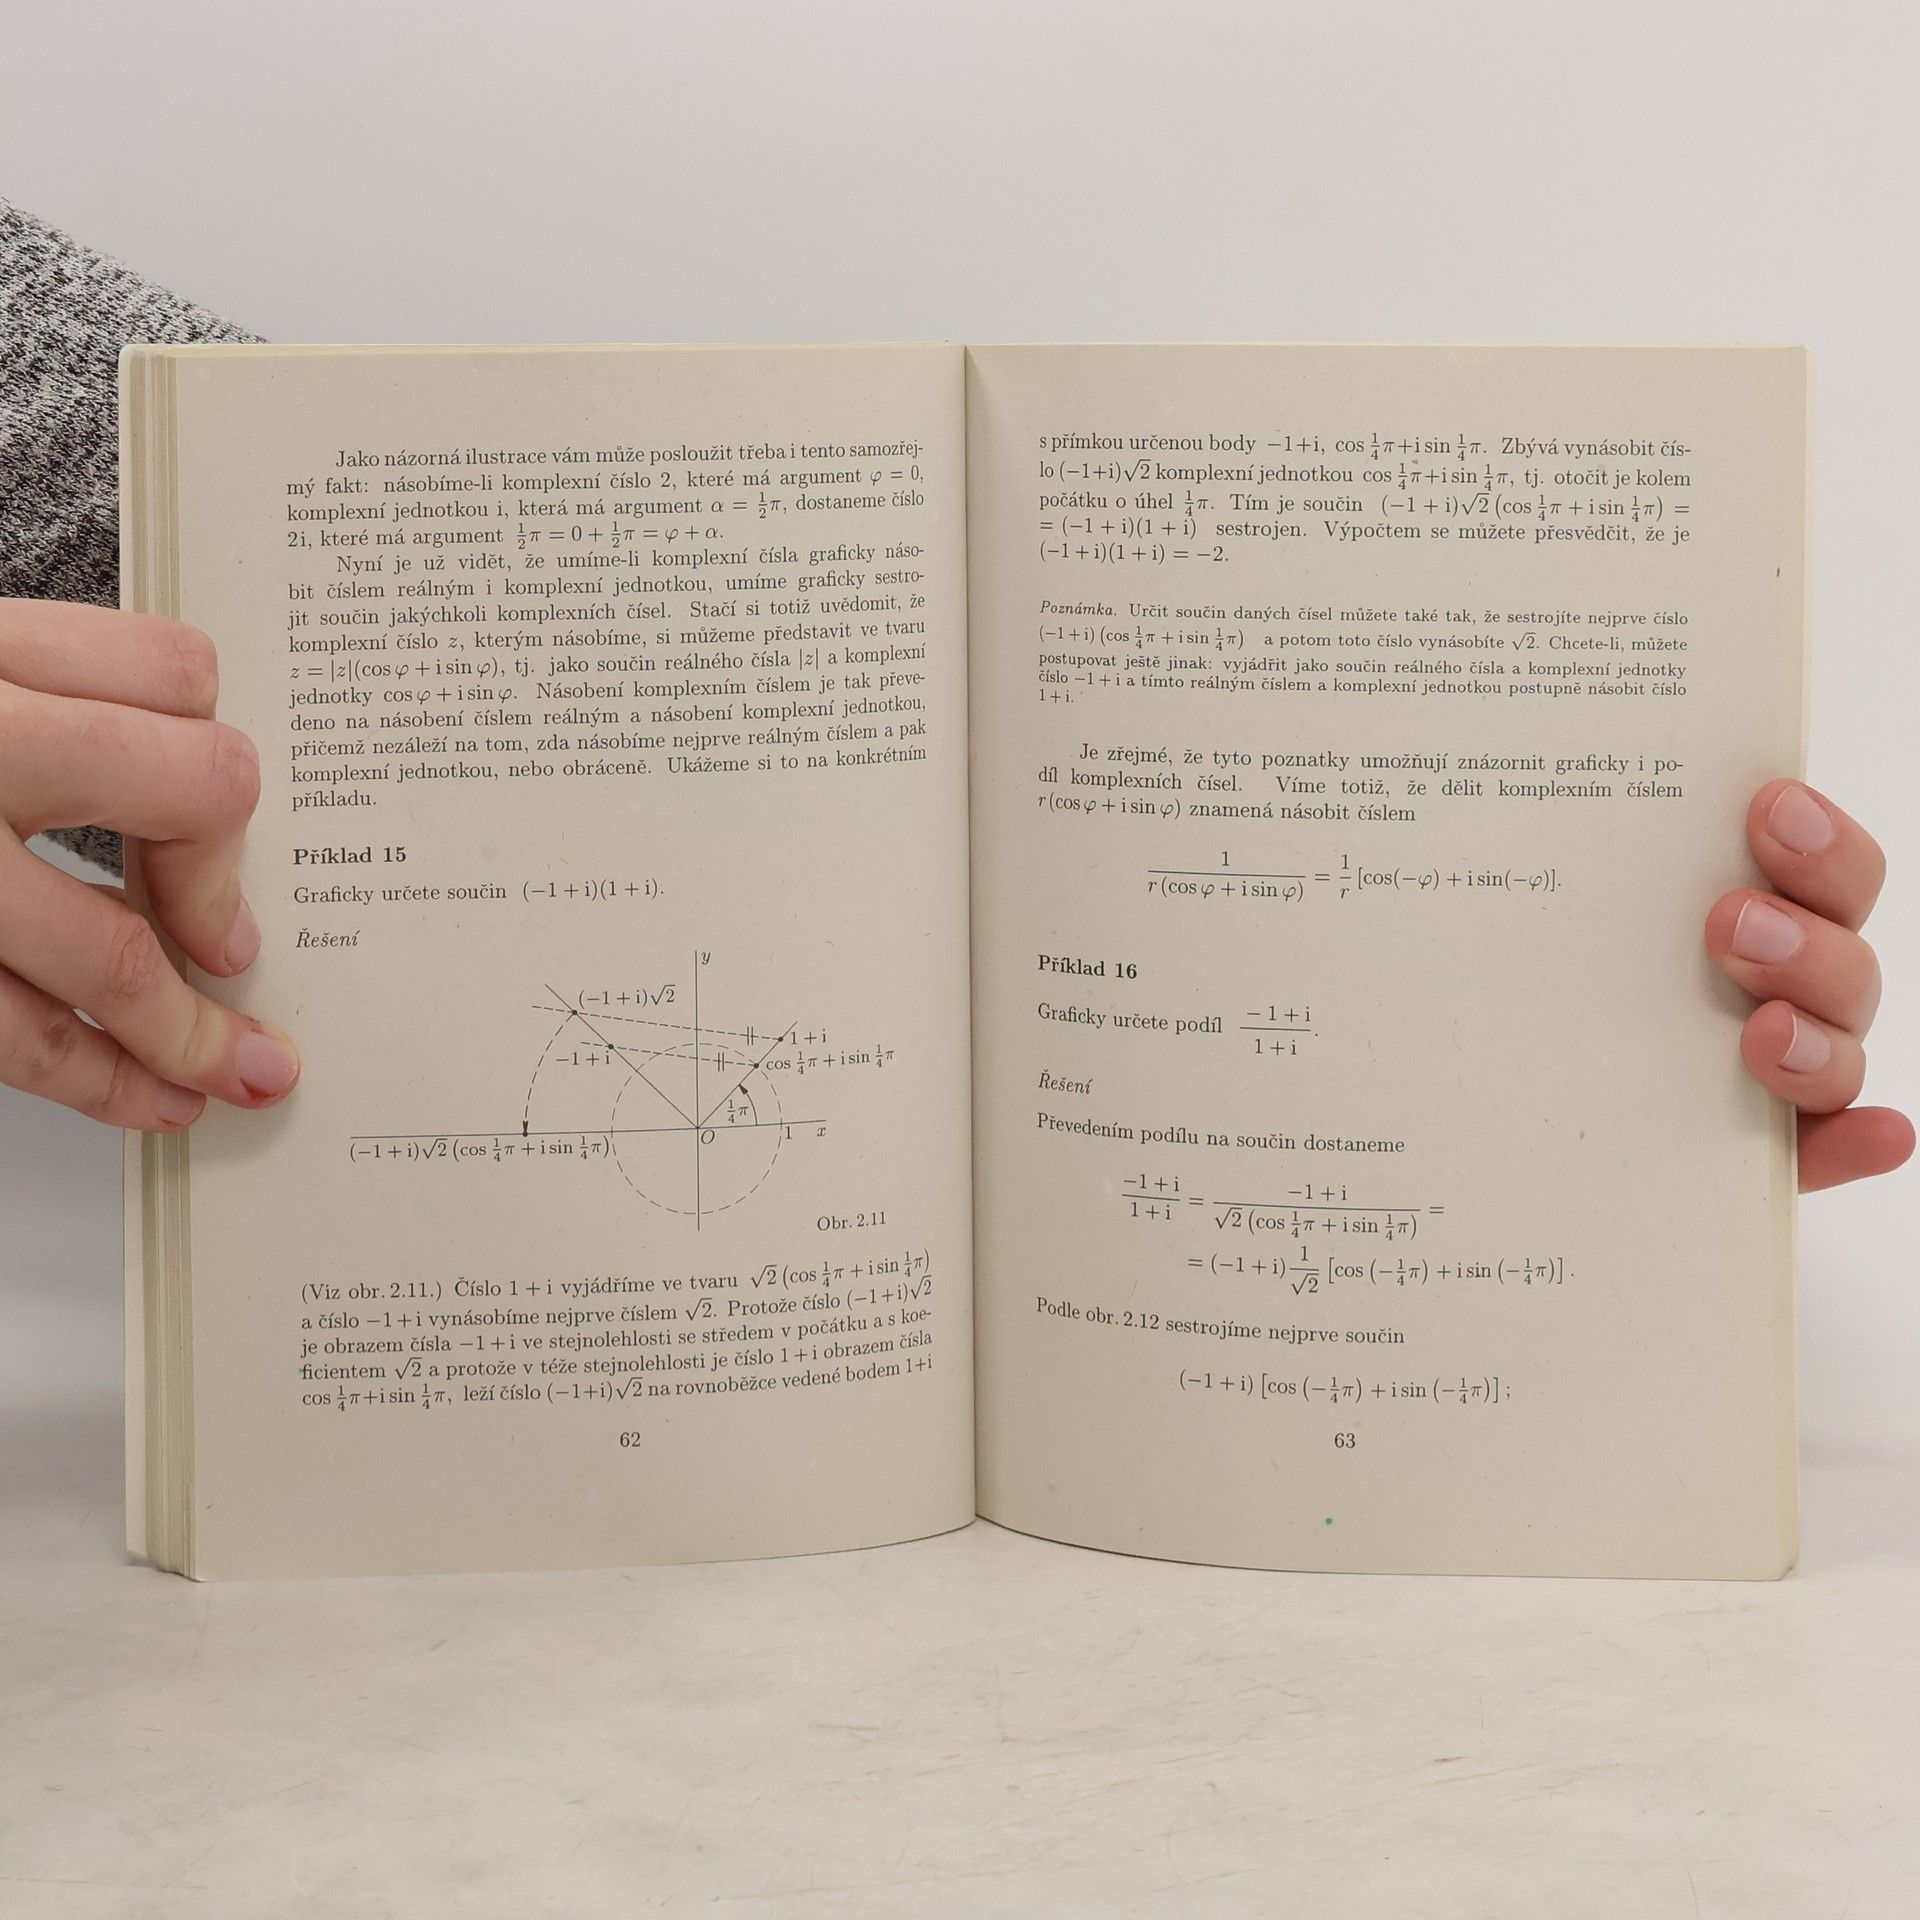 Jako názorná ilustrace vám může posloužit třeba i tento samozřej-
mý fakt: násobíme-li komplexní číslo 2, které má argument φ = 0,
komplexní jednotkou i, která má argument α = ½π, dostaneme číslo
2i, které má argument ½π = 0 + ½π = φ + α.
Nyní je už vidět, že umíme-li komplexní čísla graficky náso-
bit číslem reálným i komplexní jednotkou, umíme graficky sestro-
jit součin jakýchkoli komplexních čísel. Stačí si totiž uvědomit, že
komplexní číslo z, kterým násobíme, si můžeme představit ve tvaru
z = |z|(cos φ + i sin φ), tj. jako součin reálného čísla |z| a komplexní
jednotky cos φ + i sin φ. Násobení komplexním číslem je tak převe-
deno na násobení číslem reálným a násobení komplexní jednotkou,
přičemž nezáleží na tom, zda násobíme nejprve reálným číslem a pak
komplexní jednotkou, nebo obráceně. Ukážeme si to na konkrétním
příkladu.
Příklad 15
Graficky určete součin (−1 + i)(1 + i).
Řešení
y
(−1 + i)√2
1 + i
−1 + i
cos ¼π + i sin ¼π
¼π
O
1
x
(−1 + i)√2 (cos ¼π + i sin ¼π)
Obr. 2.11
(Viz obr. 2.11.) Číslo 1 + i vyjádříme ve tvaru √2 (cos ¼π + i sin ¼π)
a číslo −1 + i vynásobíme nejprve číslem √2. Protože číslo (−1+i)√2
je obrazem čísla −1 + i ve stejnolehlosti se středem v počátku a s koe-
ficientem √2 a protože v téže stejnolehlosti je číslo 1 + i obrazem čísla
cos ¼π+i sin ¼π, leží číslo (−1+i)√2 na rovnoběžce vedené bodem 1+i
62
s přímkou určenou body −1+i, cos ¼π+i sin ¼π. Zbývá vynásobit čís-
lo (−1+i)√2 komplexní jednotkou cos ¼π+i sin ¼π, tj. otočit je kolem
počátku o úhel ¼π. Tím je součin (−1 + i)√2 (cos ¼π + i sin ¼π) =
= (−1 + i)(1 + i) sestrojen. Výpočtem se můžete přesvědčit, že je
(−1 + i)(1 + i) = −2.
Poznámka. Určit součin daných čísel můžete také tak, že sestrojíte nejprve číslo
(−1 + i) (cos ¼π + i sin ¼π) a potom toto číslo vynásobíte √2. Chcete-li, můžete
postupovat ještě jinak: vyjádřit jako součin reálného čísla a komplexní jednotky
číslo −1 + i a tímto reálným číslem a komplexní jednotkou postupně násobit číslo
1 + i.
Je zřejmé, že tyto poznatky umožňují znázornit graficky i po-
díl komplexních čísel. Víme totiž, že dělit komplexním číslem
r (cos φ + i sin φ) znamená násobit číslem
1/(r (cos φ + i sin φ)) = 1/r [cos(−φ) + i sin(−φ)].
Příklad 16
Graficky určete podíl (−1 + i)/(1 + i).
Řešení
Převedením podílu na součin dostaneme
(−1 + i)/(1 + i) = (−1 + i)/(√2 (cos ¼π + i sin ¼π)) =
= (−1 + i) 1/√2 [cos (−¼π) + i sin (−¼π)] .
Podle obr. 2.12 sestrojíme nejprve součin
(−1 + i) [cos (−¼π) + i sin (−¼π)] ;
63